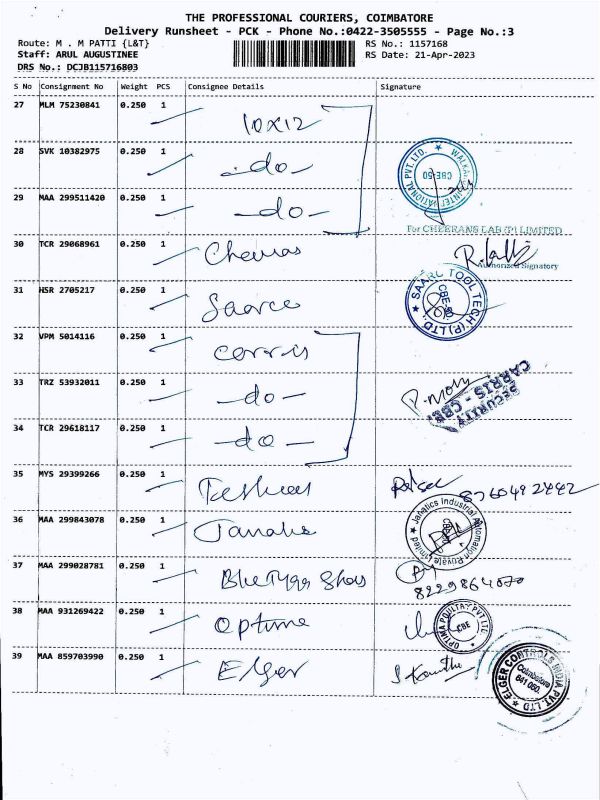 THE PROFESSIONAL COURIERS, COIMBATORE
Delivery Runsheet - PCK - Phone No.:0422-3505555 - Page No.:3
Route: M . M PATTI {L&T}
RS No.: 1157168
Staff: ARUL AUGUSTINEE
RS Date: 21-Apr-2023
DRS No.: DCJB115716803
S No Consignment No Weight PCS Consignee Details Signature
27 MLM 75230841 0.250 1 10x12
28 SVK 10382975 0.250 1 -do-
WALKAR INTERNATIONAL PVT. LTD. CBE-50
29 MAA 299511420 0.250 1 -do-
For CHEERANS LAB (P) LIMITED
30 TCR 29068961 0.250 1
Authorized Signatory
31 HSR 2705217 0.250 1
SAARC TOOL TECH (P) LTD.,
32 VPM 5014116 0.250 1
33 TRZ 53932011 0.250 1 -do-
SECURITY
CARRIS - CBE.
34 TCR 29618117 0.250 1 -do-
35 MYS 29399266 0.250 1
8760492442
36 MAA 299843078 0.250 1
Janatics Industrial Automation Private Limited
37 MAA 299028781 0.250 1
38 MAA 931269422 0.250 1 Optima
OPTIMA POULTRY PVT LTD. CBE
39 MAA 859703990 0.250 1 Elger
ELGER CONTROLS INDIA PVT. LTD
Coimbatore
641 050.